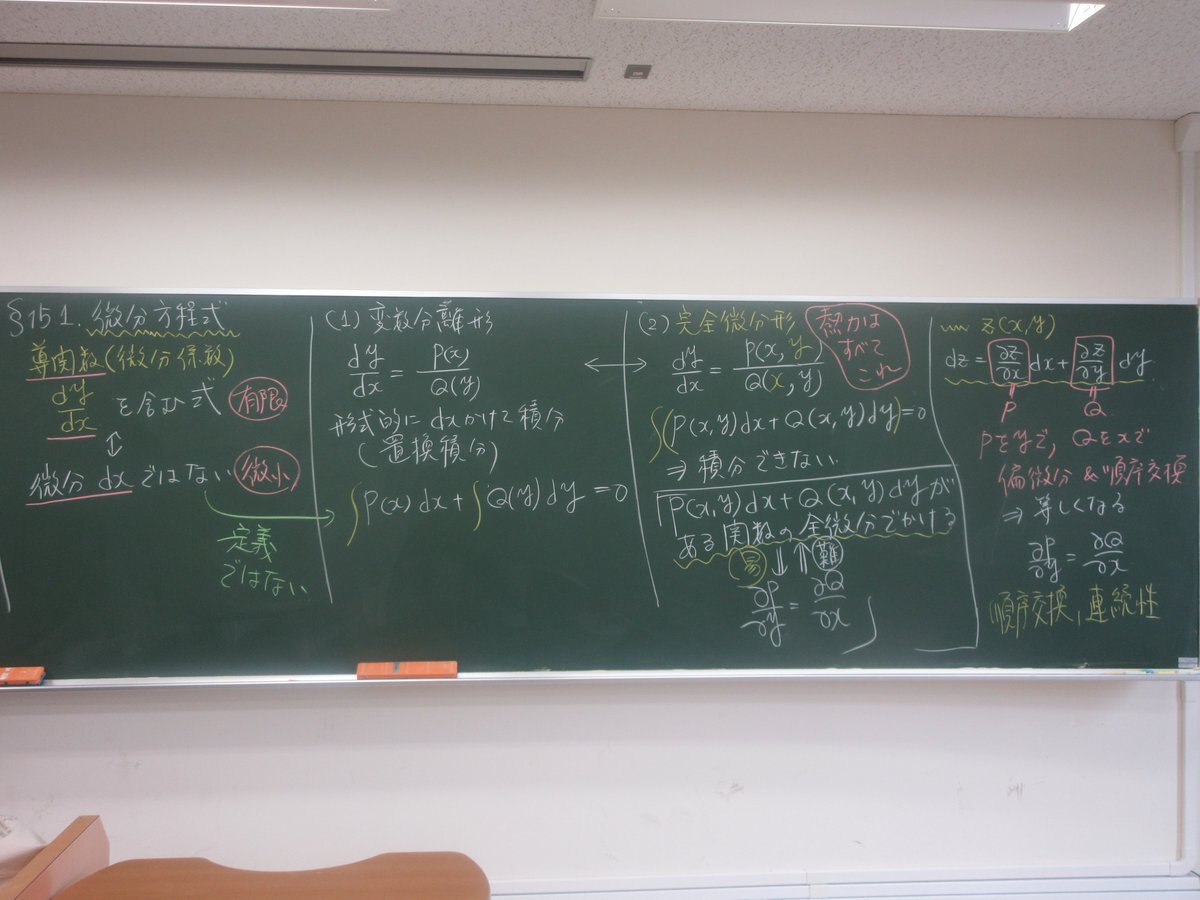 §151. 微分方程式
導関数(微分係数)
dy/dx を含む式 有限
↕
微分 dx ではない 微小
定義
ではない
(1) 変数分離形
dy/dx = P(x)/Q(y)
形式的に dxかけて積分
(置換積分)
∫P(x)dx+∫Q(y)dy=0
↔
(2) 完全微分形
熱力は
すべて
これ
dy/dx = P(x,y)/Q(x,y)
∫(P(x,y)dx+Q(x,y)dy)=0
⇒ 積分できない
P(x,y)dx+Q(x,y)dyが
ある関数の全微分でかける
易 ⇓⇑ 難
∂P/∂y = ∂Q/∂x
z(x,y)
dz = ∂z/∂x dx + ∂z/∂y dy
P Q
Pをyで, Qをxで
偏微分 & 順序交換
⇒ 等しくなる
∂P/∂y = ∂Q/∂x
順序交換, 連続性